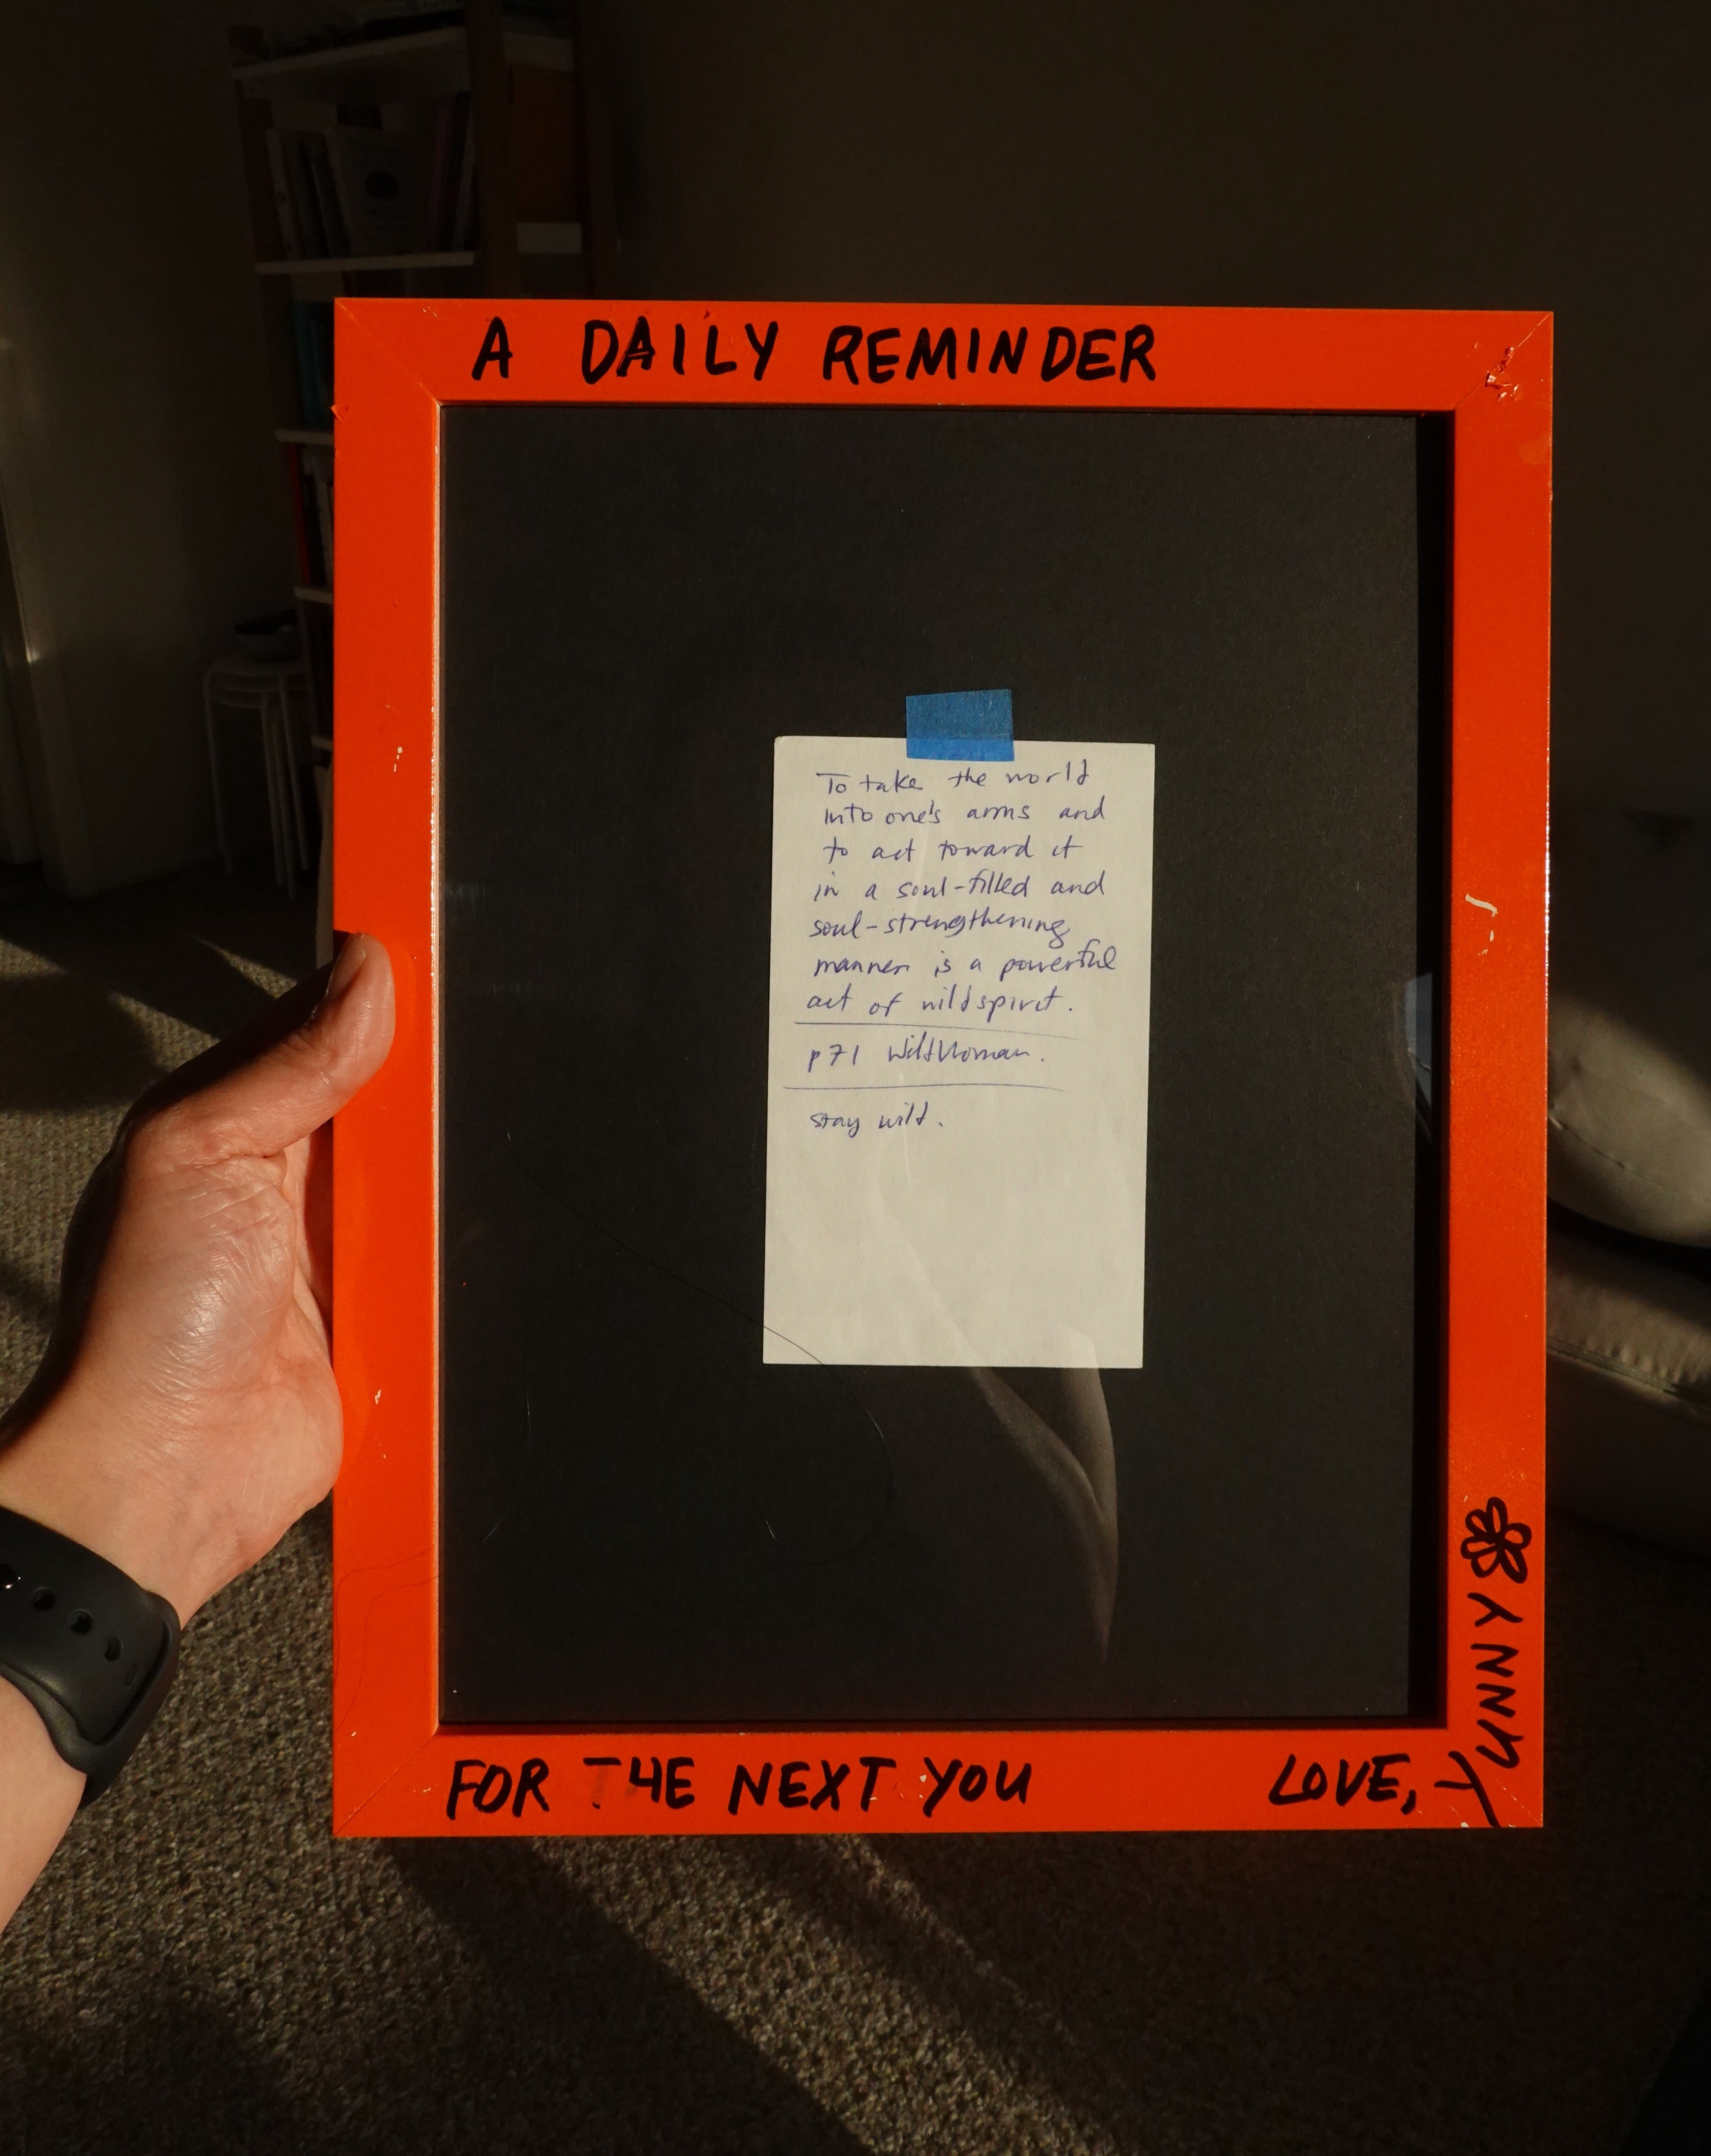 A DAILY REMINDER
To take the world
into one's arms and
to act toward it
in a soul-filled and
soul-strengthening
manner is a powerful
act of wildspirit.
p71 WildWoman.
stay wild.
FOR THE NEXT YOU
LOVE, YUNNY